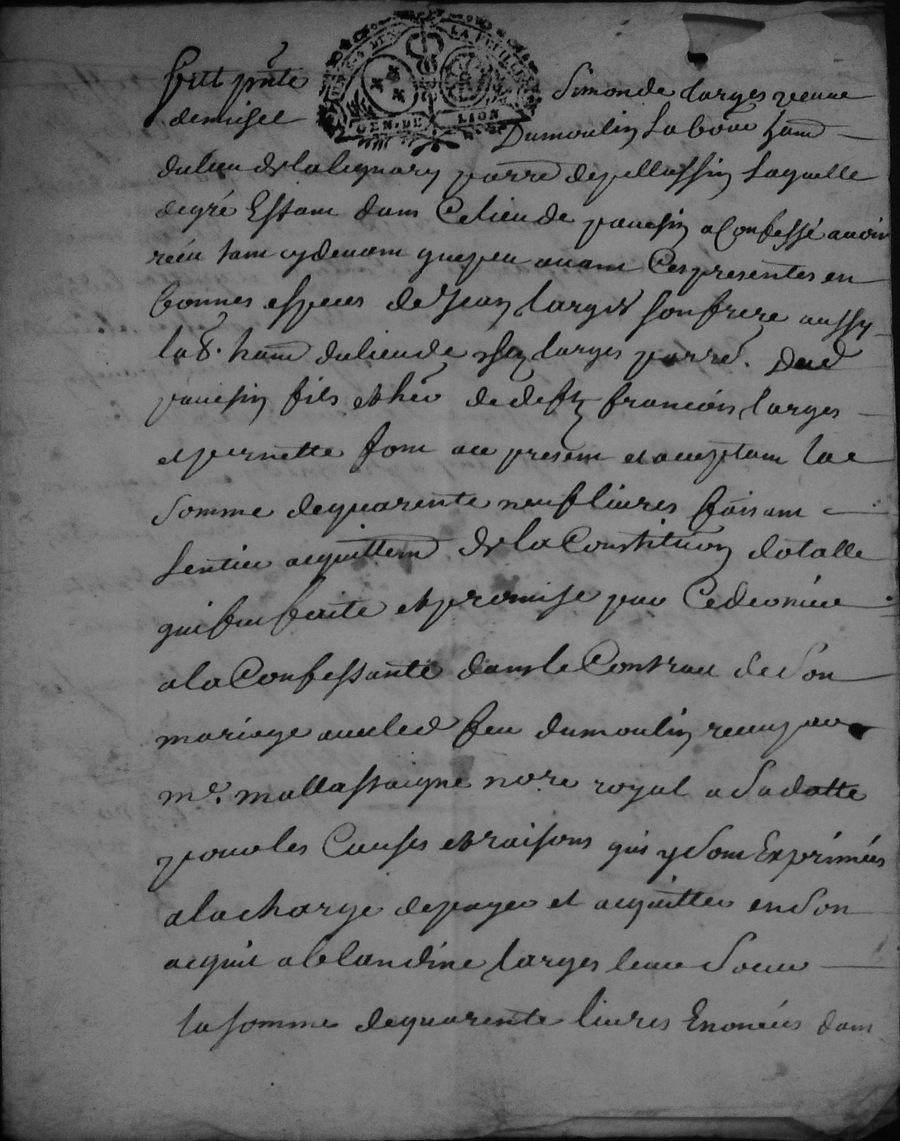 GEN. DE LION
fust pnte Simonde Larges veuve
de misel Dumoulin Labour ham
du lieu de parre de pellussin Laquelle
de gré Estam dans Ce lieu de pavesin a Confessé avoir
reçu tam cy devam que peu avam Ces presentes en
bonnes especes de Jean Larges son frere aussy
lab. ham du lieu de chez Larges parre. Dud
pavesin fils et her de deft francois Larges
et pernette fom ace presem et acceptam La
Somme de quarente neuf livres faisam
Lentier acquittem de la Constitution dotalle
qui fut faite et promise par Ce dernier
a la Confessante dans le Contrau de Son
mariage avec led feu dumoulin recu par
me. mallassaigne nore royal a Sa datte
pour les Causes et raisons qui y Som Exprimées
a la charge de payer et acquitter en Son
acquit a blandine Larges leur Soeur
la somme de quarente livres Enoncées dam